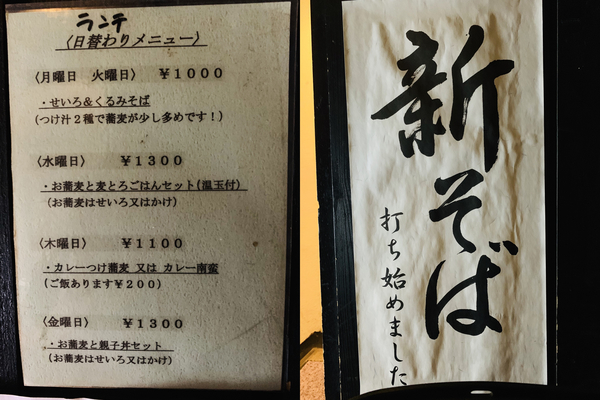 ランチ
〈日替わりメニュー〉
〈月曜日 火曜日〉 ￥1000
・せいろ＆くるみそば
(つけ汁２種で蕎麦が少し多めです！)
〈水曜日〉 ￥1300
・お蕎麦と麦とろごはんセット(温玉付)
(お蕎麦はせいろ又はかけ)
〈木曜日〉 ￥1100
・カレーつけ蕎麦 又は カレー南蛮
(ご飯あります￥200)
〈金曜日〉 ￥1300
・お蕎麦と親子丼セット
(お蕎麦はせいろ又はかけ)
新そば
打ち始めました